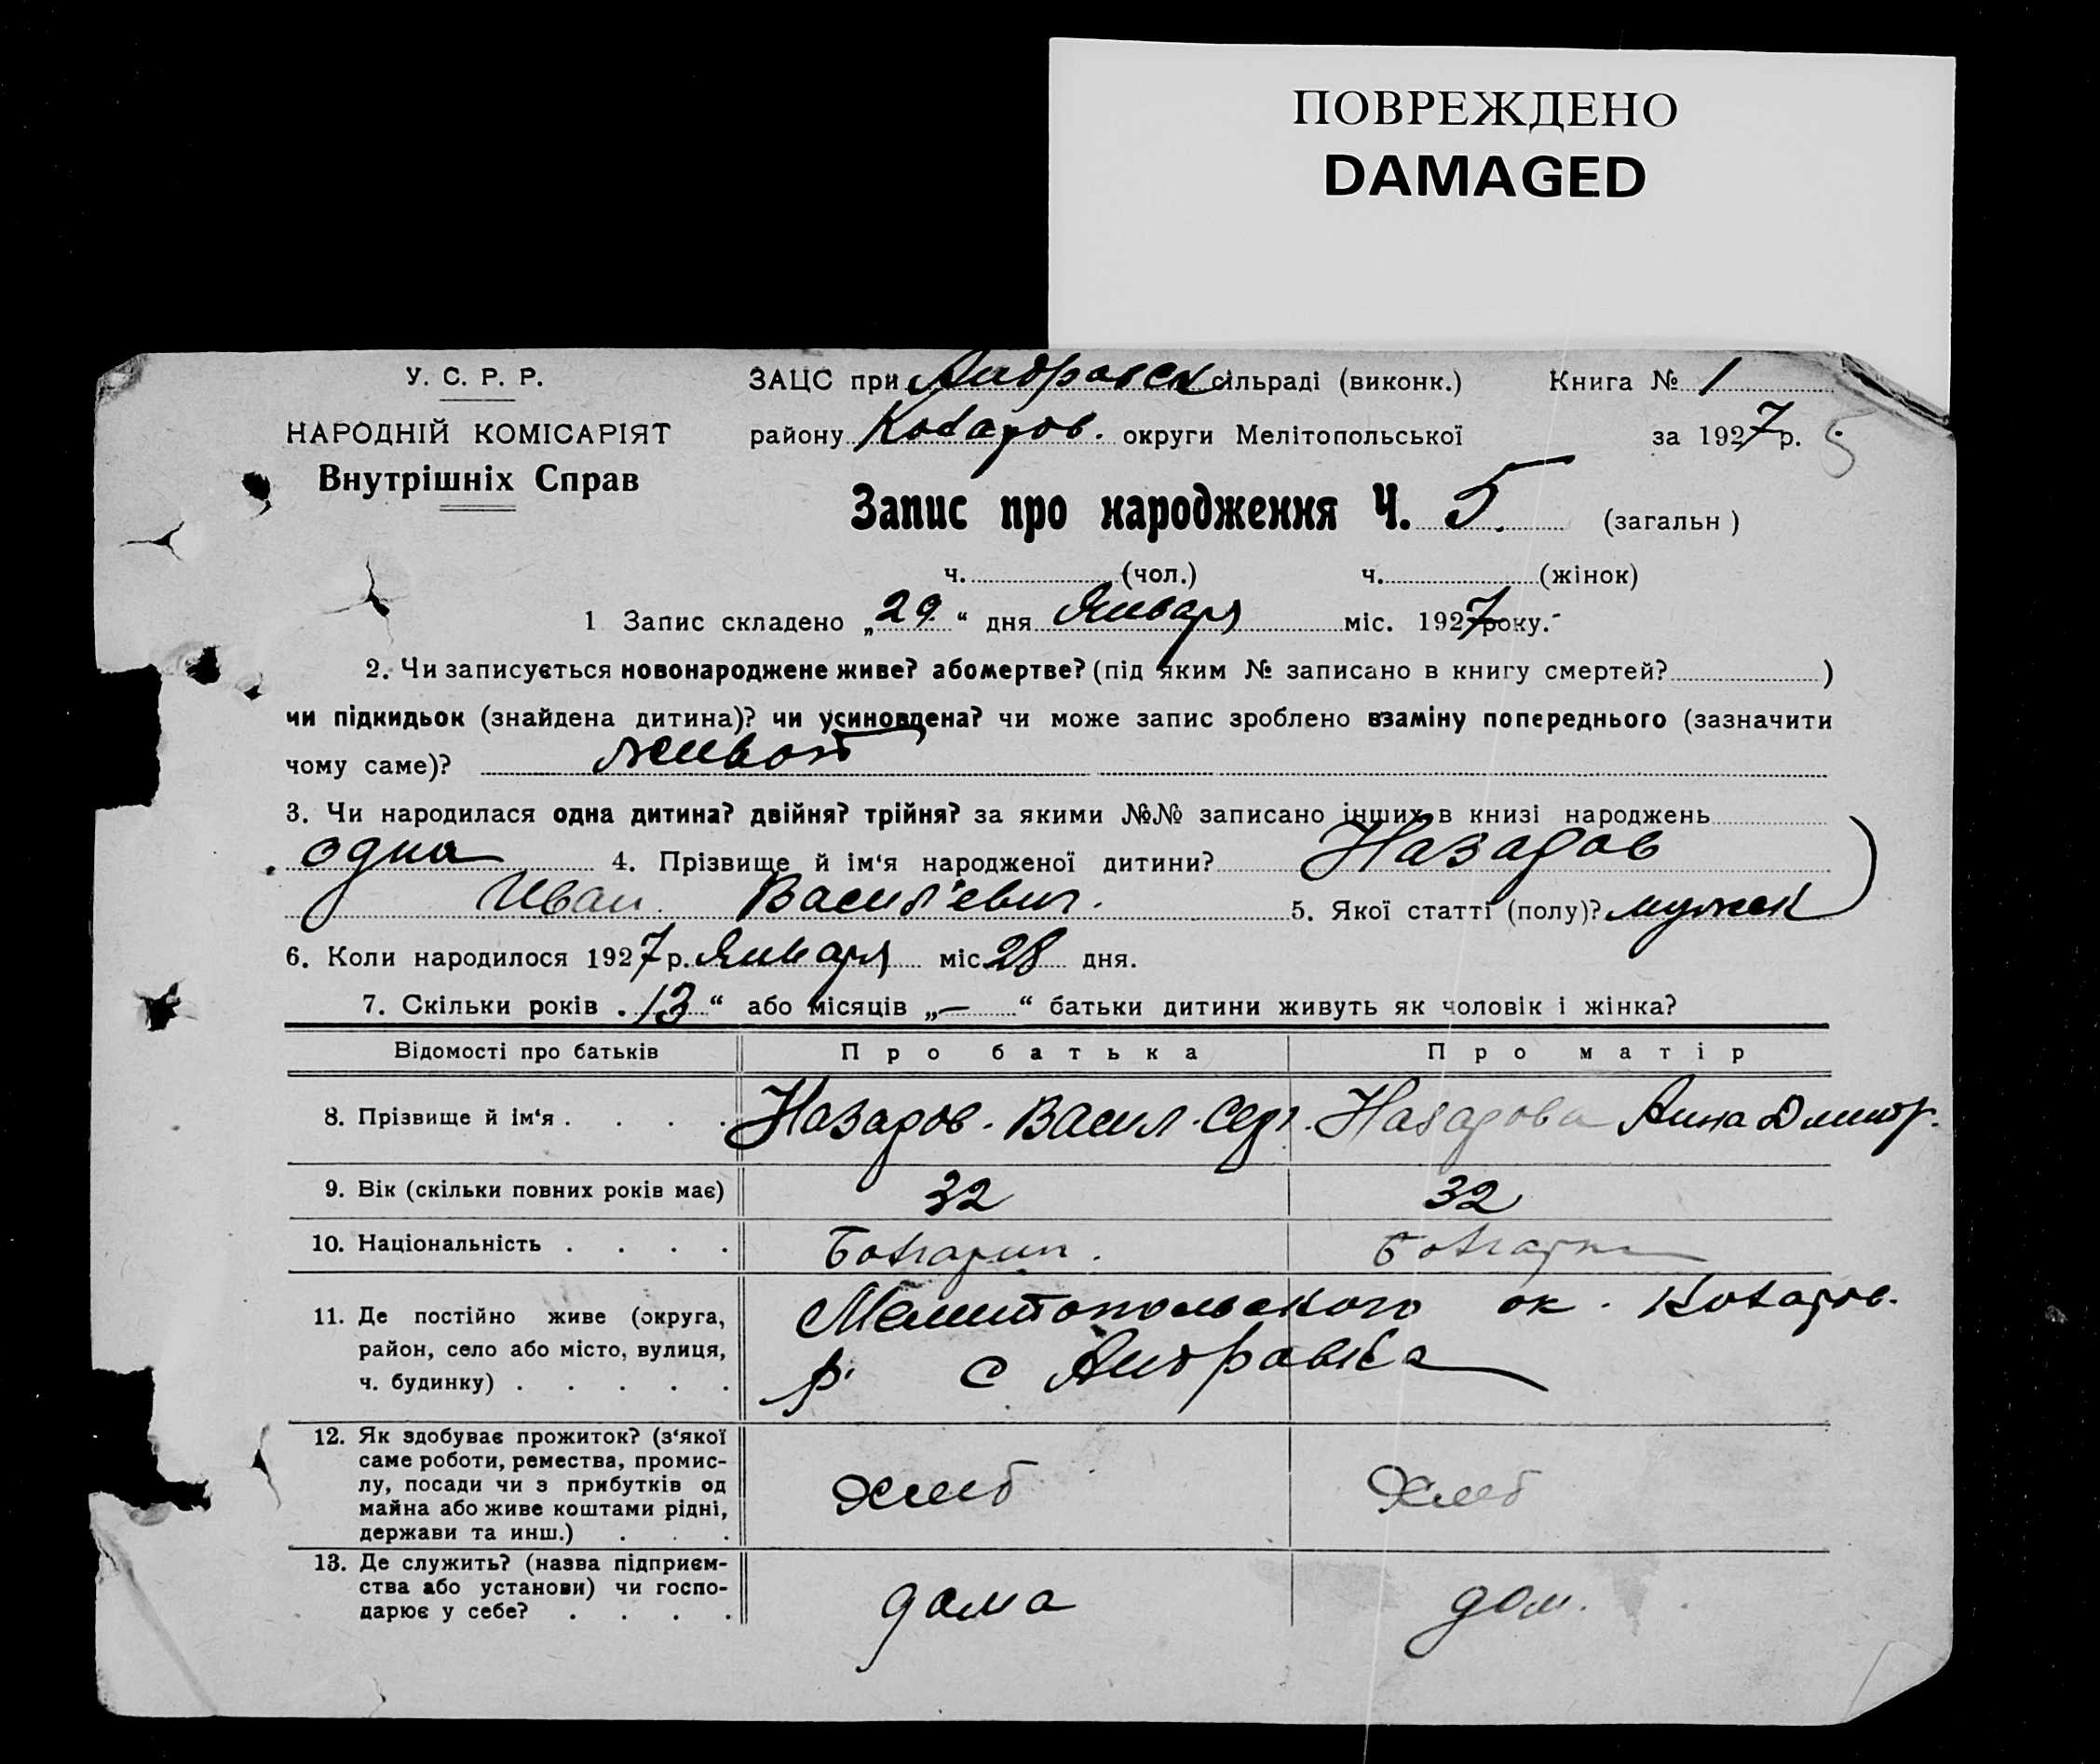 ПОВРЕЖДЕНО
DAMAGED
У. С. Р. Р.
НАРОДНІЙ КОМІСАРІЯТ
Внутрішніх Справ
ЗАЦС при Андровск сільраді (виконк.) Книга № 1
району Коларов. округи Мелітопольської за 1927 р. 5
Запис про народження Ч. 5 (загальн)
ч. (чол.) ч. (жінок)
1 Запис складено „29“ дня Января міс. 1927 року.
2. Чи записується новонароджене живе? або мертве? (під яким № записано в книгу смертей? )
чи підкидьок (знайдена дитина)? чи усиновлена? чи може запис зроблено взаміну попереднього (зазначити
чому саме)?
3. Чи народилася одна дитина? двійня? трійня? за якими №№ записано інших в книзі народжень
одна 4. Прізвище й ім‘я народженої дитини? Назаров
Иван Васильевич. 5. Якої статті (полу)? мужск
6. Коли народилося 1927 р. Января міс. 28 дня.
7. Скільки років „13“ або місяців „—“ батьки дитини живуть як чоловік і жінка?
Відомості про батьків Про батька Про матір
8. Прізвище й ім‘я . . . . Назаров. Васил. Сер. Назарова Анна Дмитр.
9. Вік (скільки повних років має) 32 32
10. Національність . . . . Болгарин. Болгарка
11. Де постійно живе (округа, Мелитопольского ок. Коларов.
район, село або місто, вулиця, р. с Андровка
ч. будинку) . . . . .
12. Як здобуває прожиток? (з‘якої
саме роботи, ремества, промис-
лу, посади чи з прибутків од Хлеб Хлеб
майна або живе коштами рідні,
держави та инш.) . . .
13. Де служить? (назва підприєм-
ства або установи) чи госпо- дома дом.
дарює у себе? . . . .